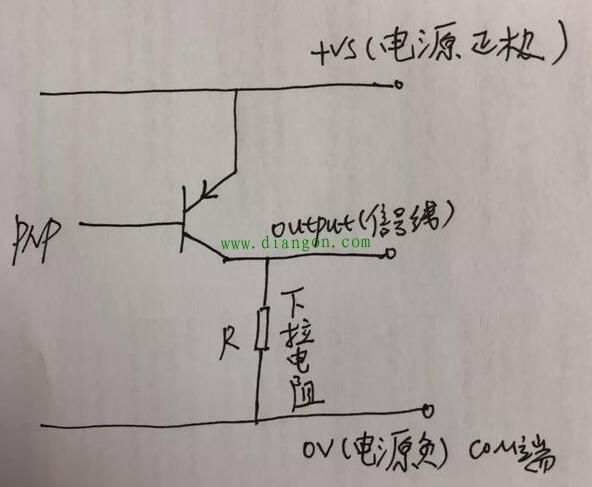 +VS(电源正极)
PNP
output(信号线)
www.diangon.com
R
下拉电阻
0V(电源负) COM端